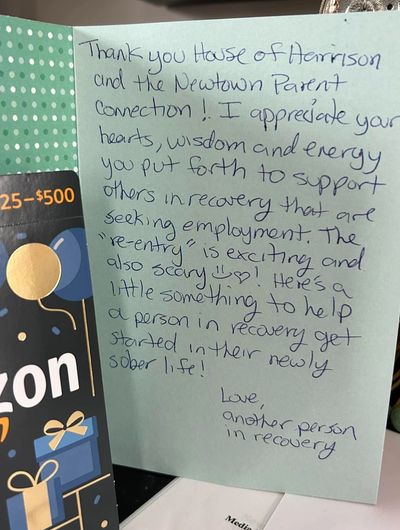 Thank you House of Harrison
and the Newtown Parent
Connection! I appreciate your
hearts, wisdom and energy
you put forth to support
others in recovery that are
seeking employment. The
"re-entry" is exciting and
also scary! Here's a
little something to help
a person in recovery get
started in their newly
sober life!
Love,
another person
in recovery
25-$500
zon
Medic